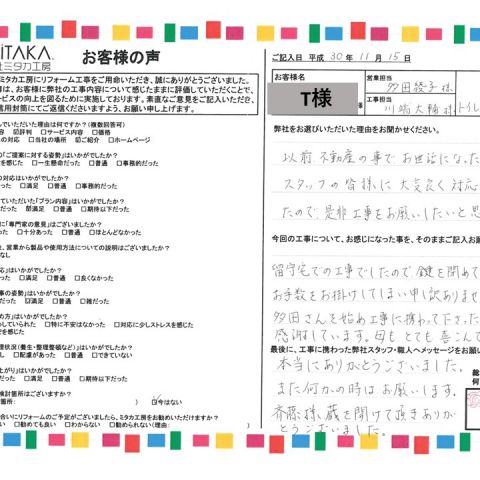 iTAKA
社ミタカ工房
お客様の声
ミタカ工房にリフォーム工事をご用命いただき、誠にありがとうございました。
は、お客様に弊社の工事内容について感じたままに評価していただくことで、
ービスの向上を図るために実施しております。素直なご意見をご記入いただき、
信用封筒にてご返信くださいますよう、お願い申し上げます。
していただいた理由は何ですか?(複数回答可)
☑評判 □サービス内容 □価格
の対応 □当社の場所 ☑ご紹介 □ホームページ
の「ご提案に対する姿勢」はいかがでしたか?
を感じた □一生懸命だった □普通 □事務的だった
の対応はいかがでしたか?
った □満足 □普通 □事務的だった
ていただいた「プラン内容」はいかがでしたか?
だった ☑満足 □普通 □期待以下だった
に「専門家の意見」はございましたか?
った □十分あった □普通 □ほとんどなかった
、営業から製品や使用方法についての説明はございましたか?
なし
応」はいかがでしたか?
った □満足 □普通 □良くなかった
事の姿勢」はいかがでしたか?
だった ☑満足 □普通 □雑だった
め方」はいかがでしたか?
っていられた □特に不安はなかった □対応に少しストレスを感じた
を感じた
理状況(養生・整理整頓など)」はいかがでしたか?
し □配慮があった □普通 □できていない
上がり」はいかがでしたか?
った □満足 □普通 □期待以下だった
検討箇所はございますか?
箇所: ) ☑今はない
合いにリフォームのご予定がございましたら、ミタカ工房をお勧めいただけますか?
い □勧めても良い □わからない □勧められない(理由: )
ご記入日 平成 30 年 11 月 15 日
お客様名
T様
営業担当
多田綾子 様
工事担当
川端大輔 様
トイレ
弊社をお選びいただいた理由をお聞かせください。
以前、不動産の事でお世話になった
スタッフの皆様に大変良く対応
たので、是非工事をお願いしたいと思
今回の工事について、お感じになった事を、そのままご記入お願
留守宅での工事でしたので、鍵を開めて
お手数をお掛けしてしまい申し訳ありませ
多田さんを始め工事に携わって下さった
感謝しています。母もとても喜こんで
最後に、工事に携わった弊社スタッフ・職人へメッセージをお願い
本当にありがとうございました。
また何かの時はお願いします。
斉藤様、蔵を開けて頂きありが
とうございました。
総
何